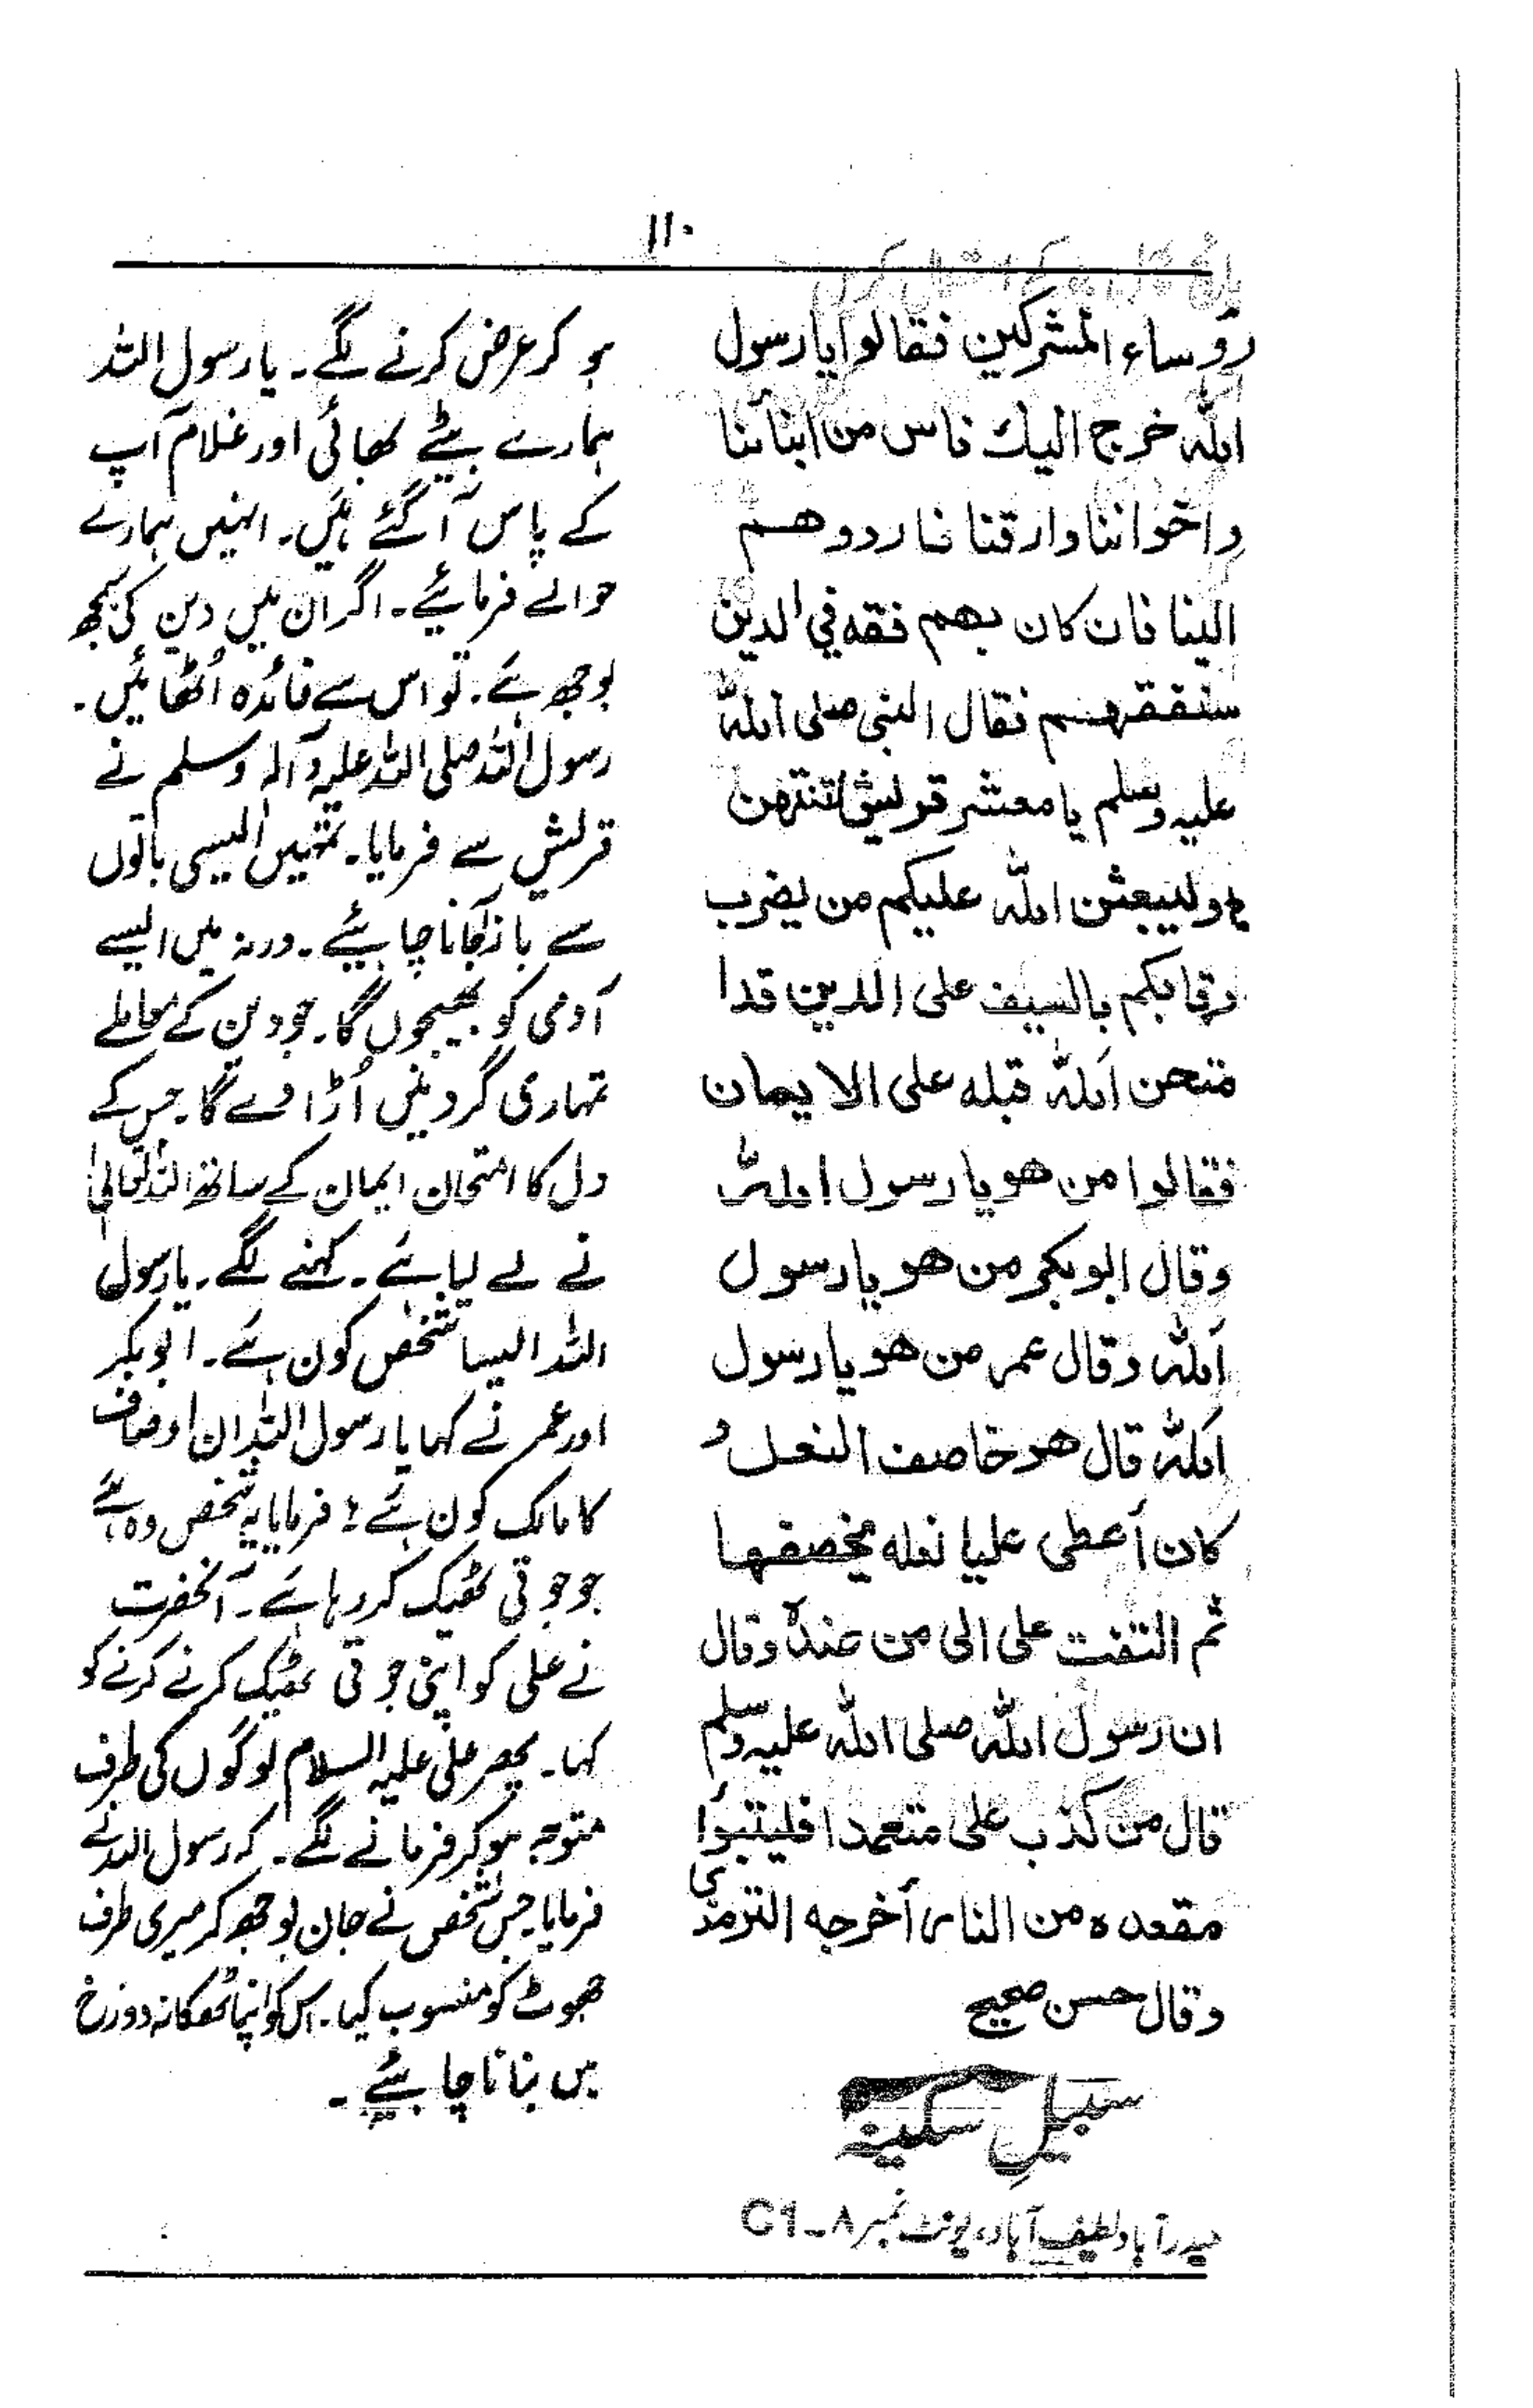 ۱۱۰
رؤساء المشركين فقالوا يا رسول
الله خرج اليك ناس من ابنائنا
واخواننا وارقنا فارددوهم
الينا فان كان بهم فقه في الدين
سنفقهم فقال النبي صلى الله
عليه وسلم يا معشر قريش لتنتهن
ولیبعثن الله عليكم من يضرب
رقابكم بالسيف على الدين قدا
متحن الله قبله على الايمان
فقالوا من هو يا رسول الله
وقال ابوبكر من هو يا رسول
الله وقال عمر من هو يا رسول
الله قال هو خاصف النعل و
كان أعطى عليا نعله يخصفها
ثم التفت على الى من عنده وقال
ان رسول الله صلى الله عليه وسلم
قال من كذب على متعمدا فليتبوأ
مقعده من النار أخرجه الترمذى
وقال حسن صحيح
سبیلِ سکینہ
حیدرآباد لطیف آباد، یونٹ نمبر ۸ـ C1
ہو کر عرض کرنے لگے۔ یا رسول اللہ
ہمارے بیٹے بھائی اور غلام آپ
کے پاس آ گئے ہیں۔ انہیں ہمارے
حوالے فرمائیے۔ اگر ان میں دین کی کچھ
بوجھ ہے۔ تو اس سے فائدہ اُٹھائیں۔
رسول اللہ صلی اللہ علیہ وآلہ وسلم نے
قریش سے فرمایا۔ تمہیں ایسی باتوں
سے باز آجانا چاہیئے۔ ورنہ میں ایسے
آدمی کو بھیجوں گا۔ جو دین کے معاملے
تمہاری گردنیں اُڑا دے گا۔ جس کے
دل کا امتحان ایمان کے ساتھ اللہ تعالیٰ
نے لے لیا ہے۔ کہنے لگے۔ یا رسول
اللہ ایسا شخص کون ہے۔ ابوبکر
اور عمر نے کہا یا رسول اللہ ان اوصاف
کا مالک کون ہے؟ فرمایا یہ شخص وہ ہے
جو جوتی ٹھیک کر رہا ہے۔ آنحضرت
نے علی کو اپنی جوتی ٹھیک کرنے کرنے کو
کہا۔ پھر علی علیہ السلام لوگوں کی طرف
متوجہ ہو کر فرمانے لگے۔ کہ رسول اللہ نے
فرمایا جس شخص نے جان بوجھ کر میری طرف
جھوٹ کو منسوب کیا۔ اس کو اپنا ٹھکانہ دوزخ
میں بنانا چاہیئے۔